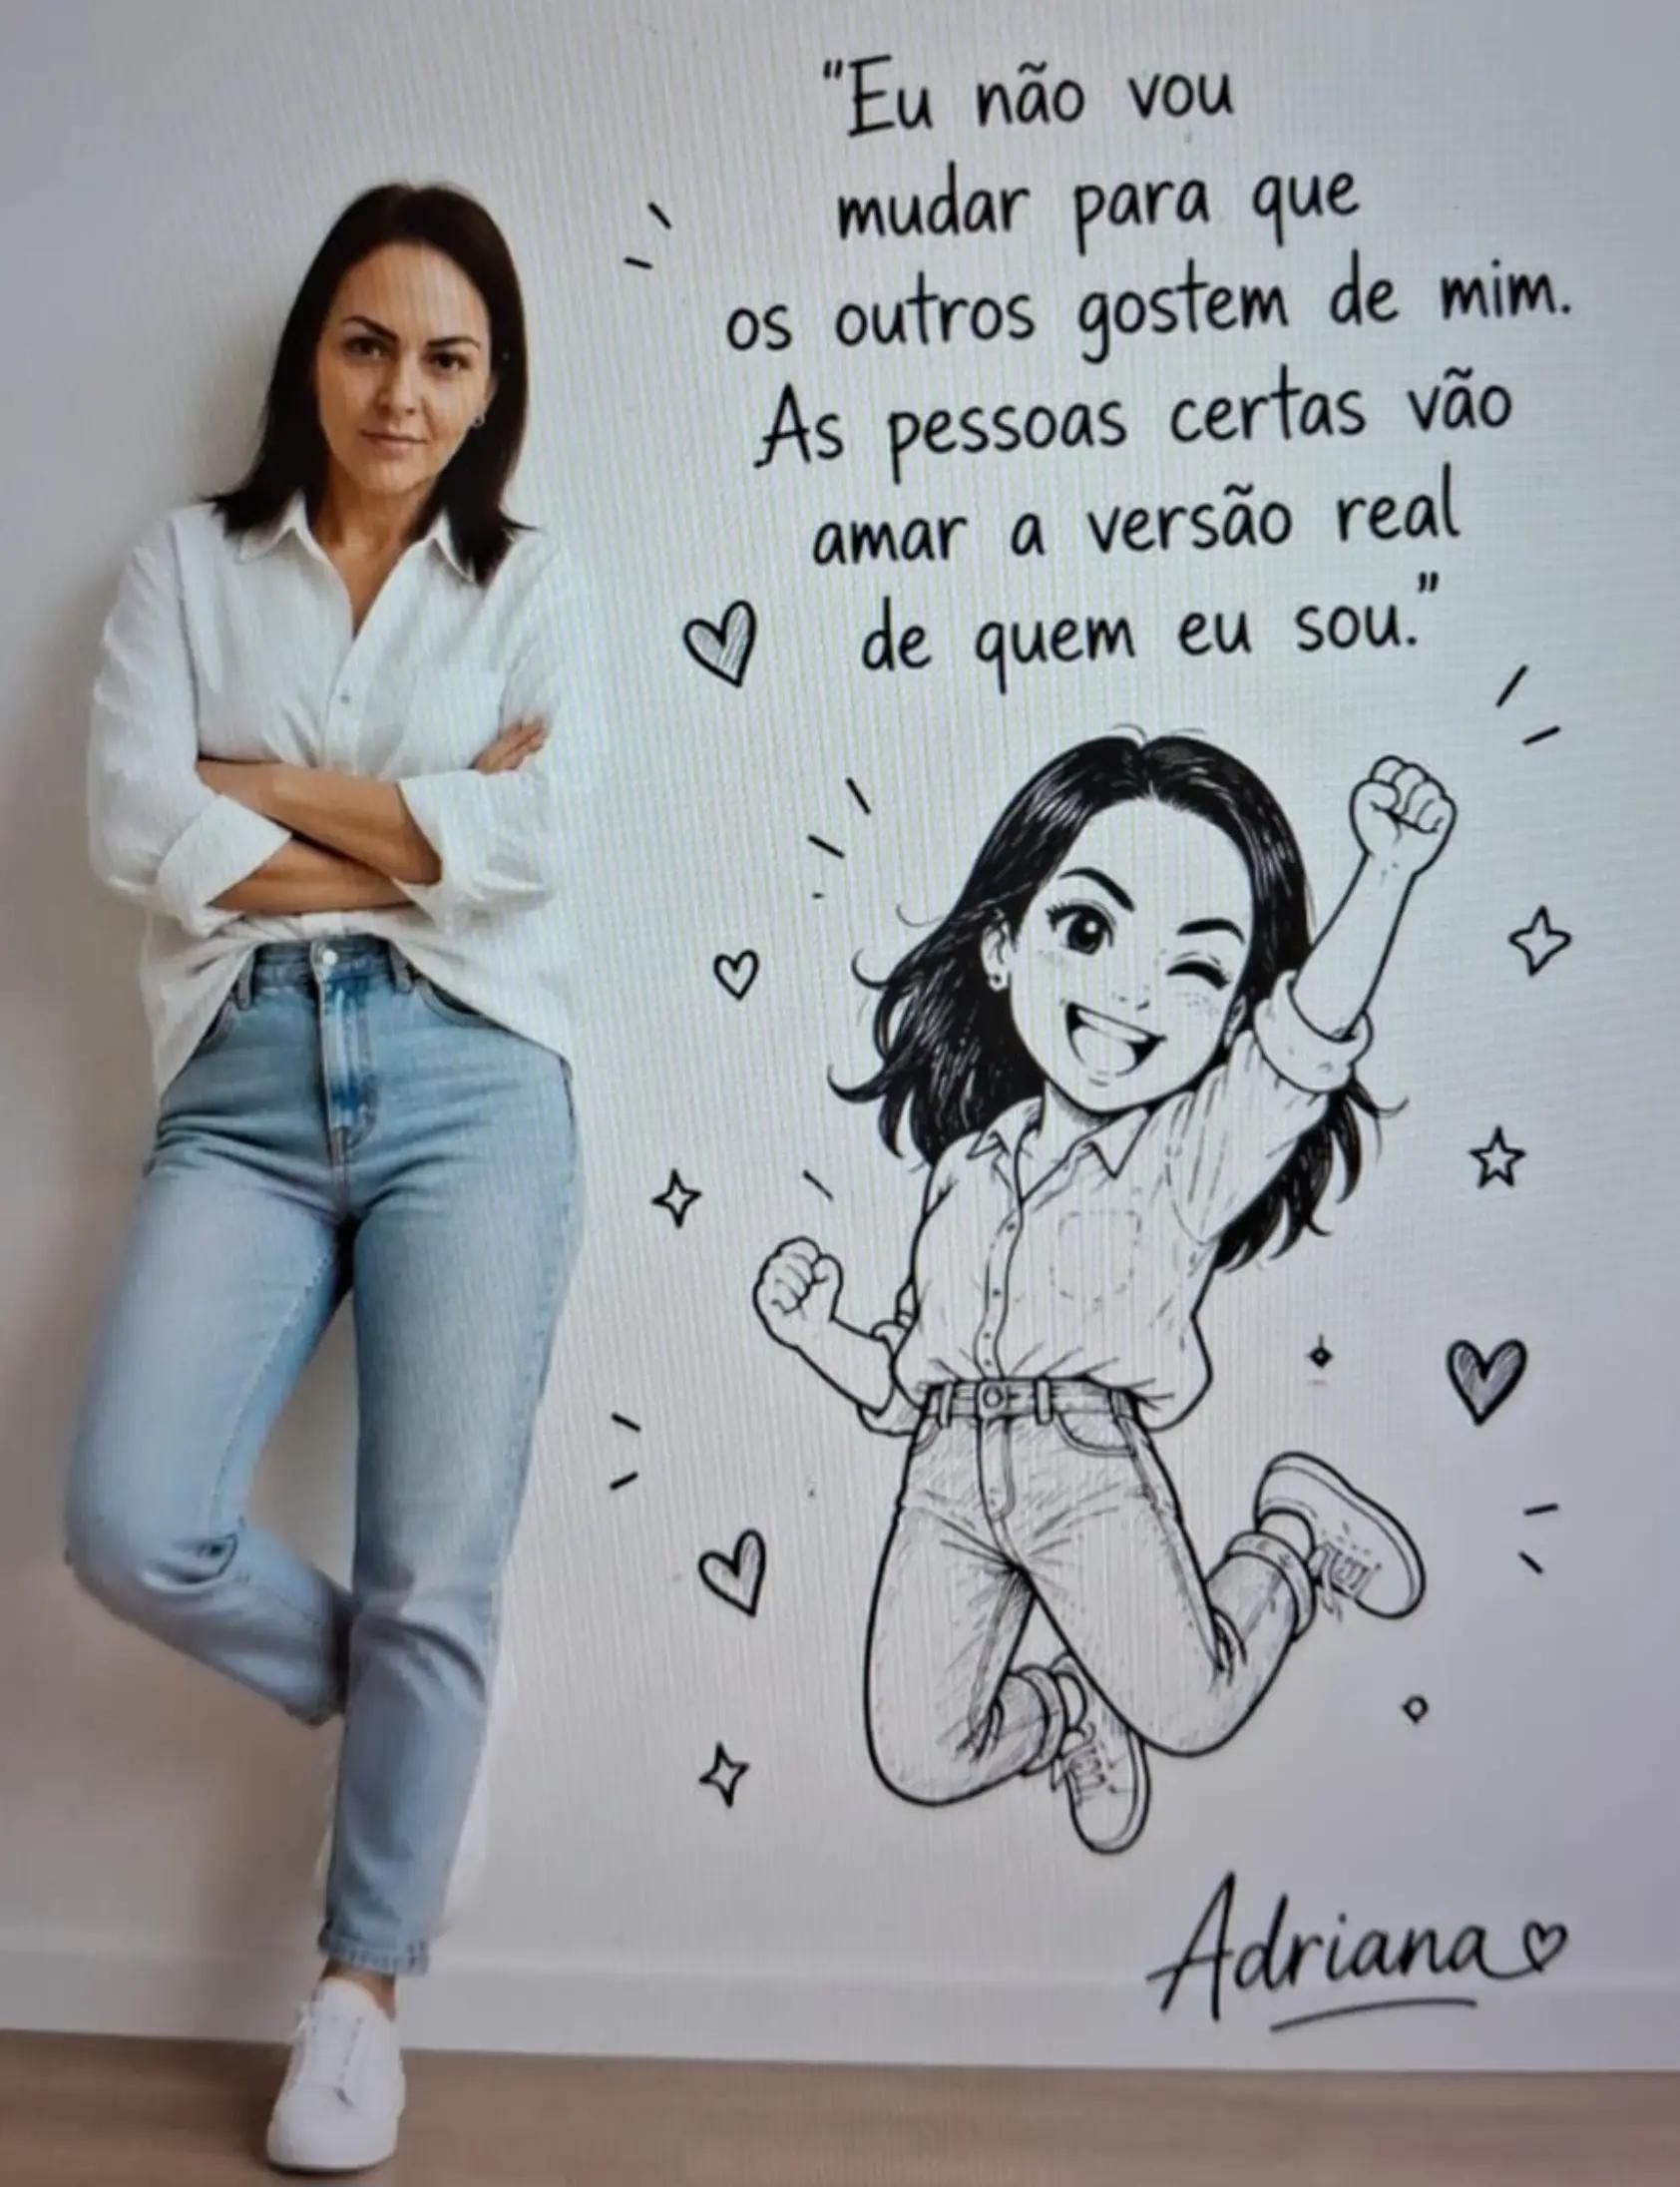 "Eu não vou
mudar para que
os outros gostem de mim.
As pessoas certas vão
amar a versão real
de quem eu sou."
Adriana